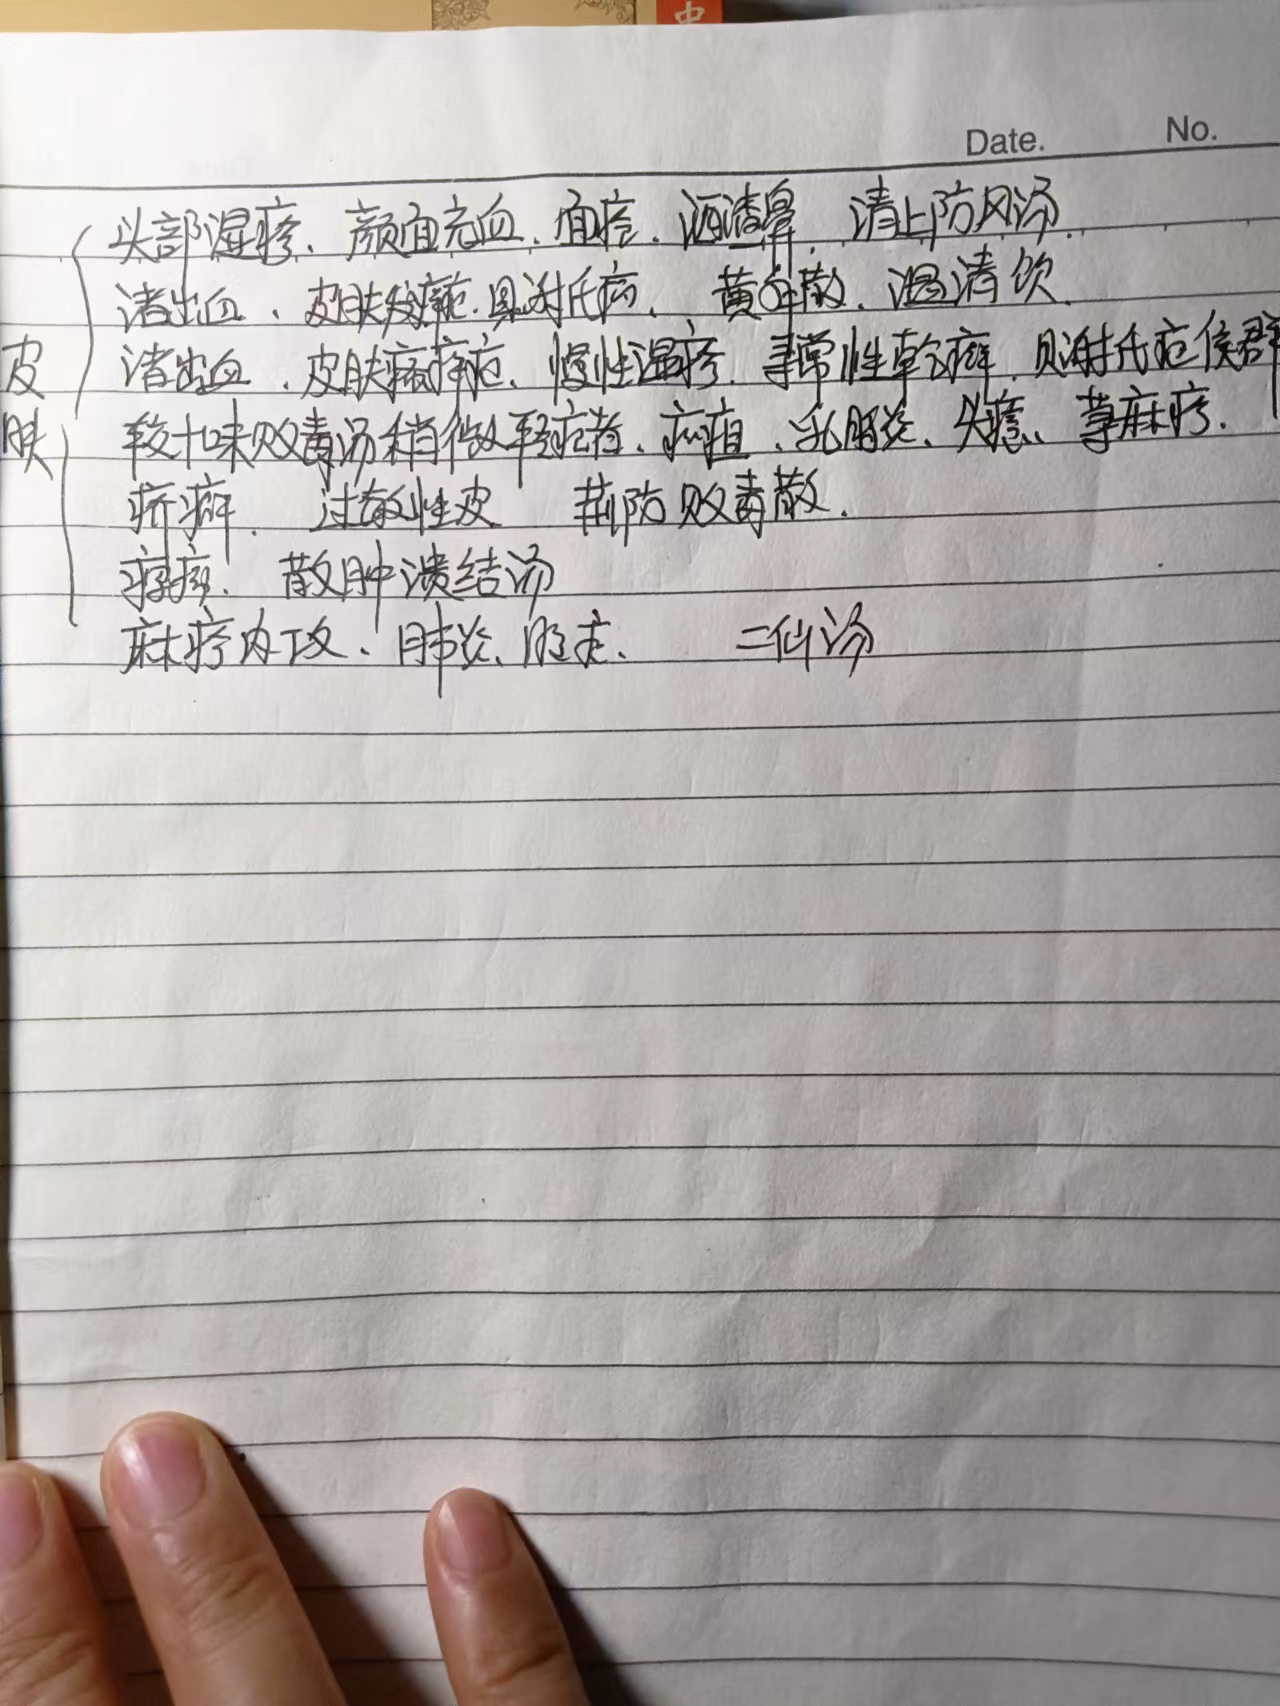 中
Date. No.
皮肤
头部湿疹、颜面充血、面疮、酒渣鼻、清上防风汤.
诸出血、皮肤瘙痒症.具谢氏病、黄芩散、温清饮.
诸出血、皮肤瘙痒症、慢性湿疹、寻常性乾癣、贝谢氏症侯群
较十味败毒汤稍微轻症者、疔疽、乳腺炎、头疮、荨麻疹.
疥癣、过敏性皮 荆防败毒散.
瘰疬、散肿溃结汤
麻疹内攻、肺炎、眼症、 二仙汤